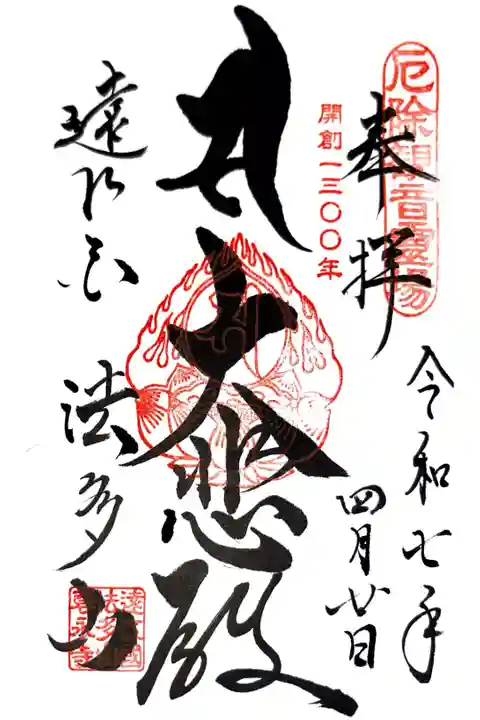 厄除観音霊場
奉拝
令和七年
四月廿日
開創一三〇〇年
大悲殿
遠州
法多山
遠江國
法多山
尊永寺